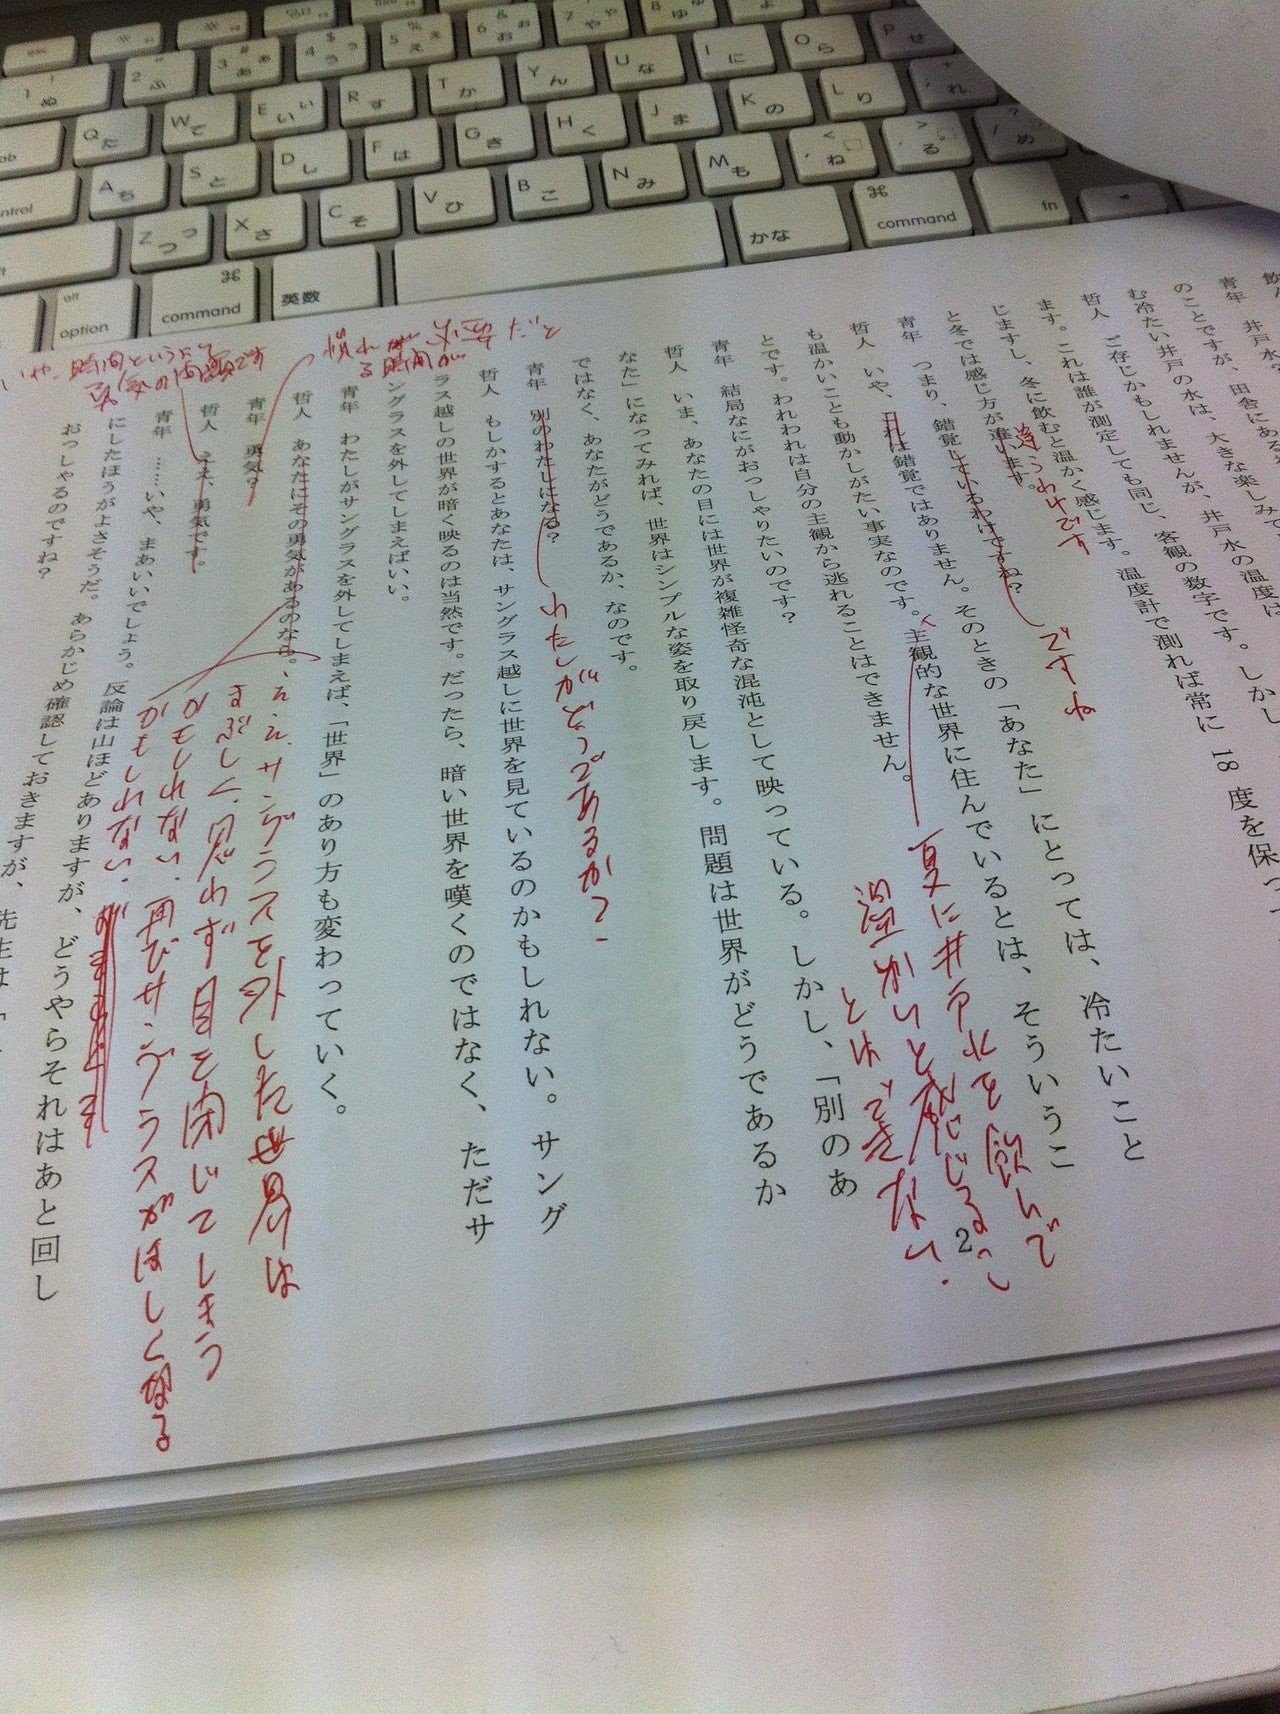 青年　井戸水?
のことですが、田舎にある
む冷たい井戸の水は、大きな楽しみで
哲人　ご存じかもしれませんが、井戸水の温度は
ます。これは誰が測定しても同じ、客観の数字です。しかし
じますし、冬に飲むと温かく感じます。温度計で測れば常に 18 度を保っ
と冬では感じ方が違います。
違うわけです
青年　つまり、錯覚しているわけですね?
ですね
哲人　いや、これは錯覚ではありません。そのときの「あなた」にとっては、冷たいこと
も温かいことも動かしがたい事実なのです。主観的な世界に住んでいるとは、そういうこ
とです。われわれは自分の主観から逃れることはできません。
夏に井戸水を飲んで
温かいと感じるこ
とはできない.
青年　結局なにがおっしゃりたいのです?
哲人　いま、あなたの目には世界が複雑怪奇な混沌として映っている。しかし、「別のあ
なた」になってみれば、世界はシンプルな姿を取り戻します。問題は世界がどうであるか
ではなく、あなたがどうであるか、なのです。
青年　別のわたしになる?
わたしがどうであるか?
哲人　もしかするとあなたは、サングラス越しに世界を見ているのかもしれない。サング
ラス越しの世界が暗く映るのは当然です。だったら、暗い世界を嘆くのではなく、ただサ
ングラスを外してしまえばいい。
青年　わたしがサングラスを外してしまえば、「世界」のあり方も変わっていく。
哲人　あなたにその勇気があるのなら。
ええ.サングラスを外した世界は
まぶしく、思わず目を閉じてしまう
かもしれない.再びサングラスがほしくなる
かもしれない.
慣れ
必要だと
時間が
青年　勇気?
哲人　ええ、勇気です。
いや、時間というより
勇気の問題です
青年　……いや、まあいいでしょう。反論は山ほどありますが、どうやらそれはあと回し
にしたほうがよさそうだ。あらかじめ確認しておきますが、先生は「
おっしゃるのですね?
2
esc
Q た
W て
E い
R す
T か
Y ん
U な
I に
O ら
P せ
A ち
S と
D し
F は
G き
H く
J ま
K の
L り
Z つ っ
X さ
C そ
V ひ
B こ
N み
M も
alt option
⌘ command
英数
かな
⌘ command
fn